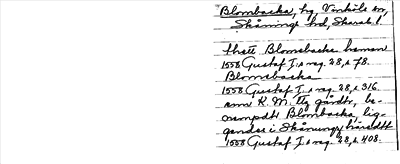 Blombacka, hg, Vinköls sn,
Skånings hd, Skarab. l.
thett Blomebacka hemen
1558 Gustaf I:s reg. 28, s. 78.
Blomebacka
1558 Gustaf I:s reg. 28, s. 316.
K. M. tty gårdt, be-
nemndt Blombacka, lig-
gendes i Skåningz häredt
1558 Gustaf I:s reg. 28, s. 408.